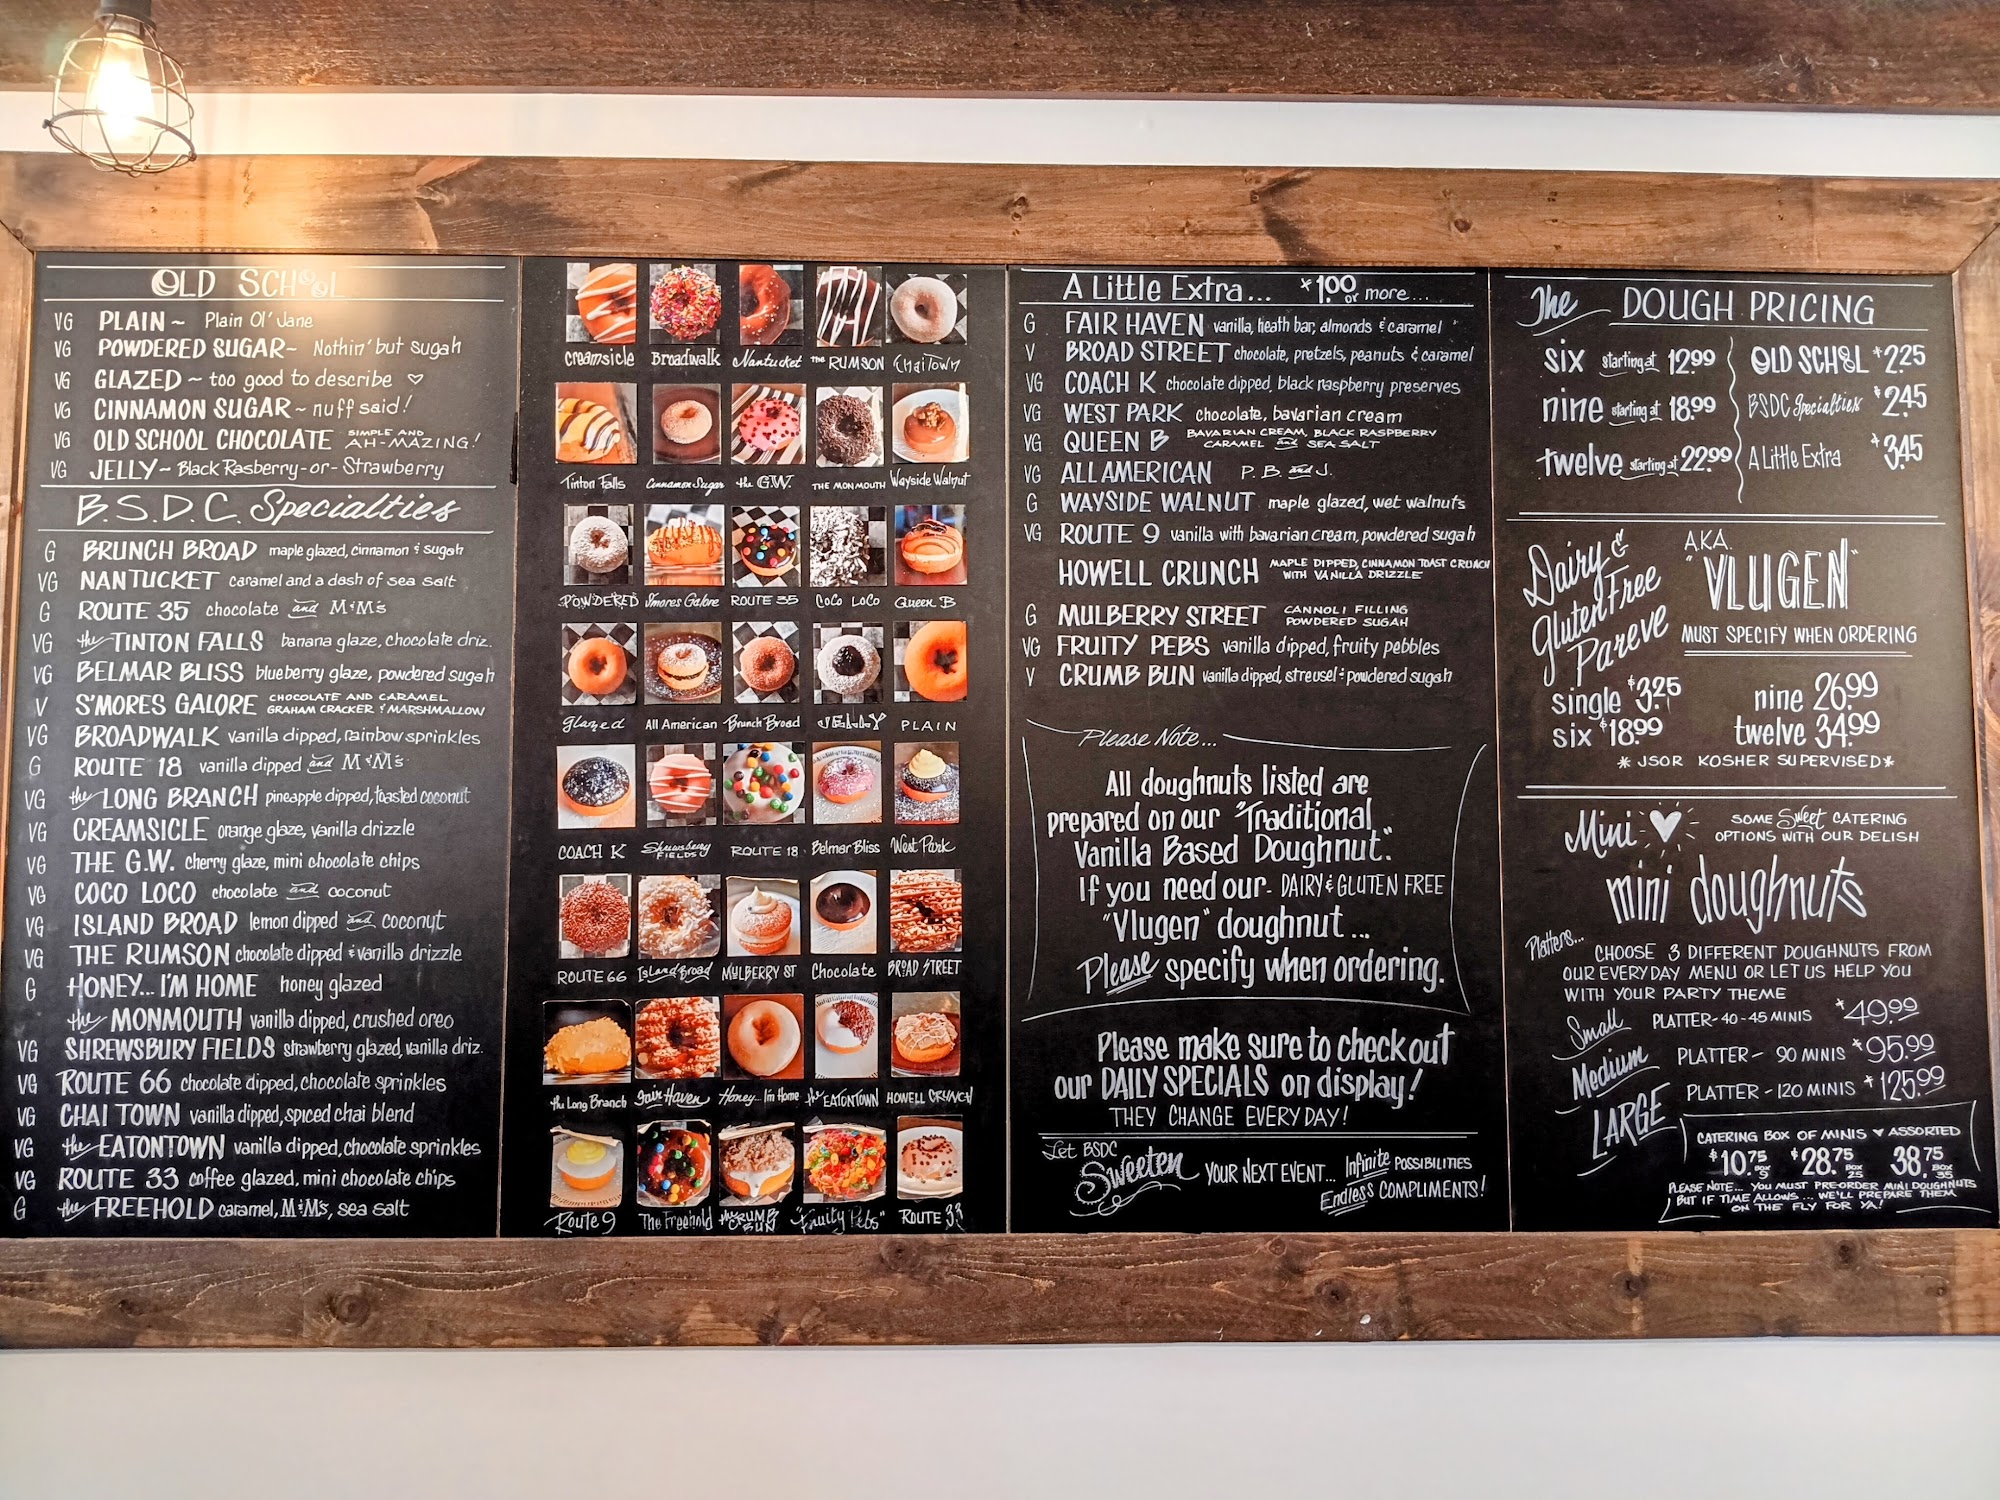 OLD SCHOOL
VG PLAIN ~ Plain Ol' Jane
VG POWDERED SUGAR ~ Nothin' but sugah
VG GLAZED ~ too good to describe ♡
VG CINNAMON SUGAR ~ nuff said!
VG OLD SCHOOL CHOCOLATE SIMPLE AND AH-MAZING!
VG JELLY ~ Black Rasberry -or- Strawberry
B.S.D.C. Specialties
G BRUNCH BROAD maple glazed, cinnamon & sugah
VG NANTUCKET caramel and a dash of sea salt
G ROUTE 35 chocolate and M&M's
VG the TINTON FALLS banana glaze, chocolate driz.
VG BELMAR BLISS blueberry glaze, powdered sugah
V S'MORES GALORE CHOCOLATE AND CARAMEL GRAHAM CRACKER & MARSHMALLOW
VG BROADWALK vanilla dipped, rainbow sprinkles
G ROUTE 18 vanilla dipped and M&M's
VG the LONG BRANCH pineapple dipped, toasted coconut
VG CREAMSICLE orange glaze, vanilla drizzle
VG THE G.W. cherry glaze, mini chocolate chips
VG COCO LOCO chocolate and coconut
VG ISLAND BROAD lemon dipped and coconut
VG THE RUMSON chocolate dipped & vanilla drizzle
G HONEY... I'M HOME honey glazed
the MONMOUTH vanilla dipped, crushed oreo
VG SHREWSBURY FIELDS strawberry glazed, vanilla driz.
VG ROUTE 66 chocolate dipped, chocolate sprinkles
VG CHAI TOWN vanilla dipped, spiced chai blend
VG the EATONTOWN vanilla dipped, chocolate sprinkles
VG ROUTE 33 coffee glazed, mini chocolate chips
G the FREEHOLD caramel, M&M's, sea salt
Creamsicle Broadwalk Nantucket THE RUMSON ChaiTown
Tinton Falls Cinnamon Sugar the G.W. THE MONMOUTH Wayside Walnut
POWDERED S'mores Galore ROUTE 35 CoCo LoCo Queen B
Glazed All American Brunch Broad JELLY PLAIN
COACH K Shrewsbury FIELDS ROUTE 18 Belmar Bliss West Park
ROUTE 66 Island Broad MULBERRY ST Chocolate BROAD STREET
the Long Branch Fair Haven Honey... I'm Home the EATONTOWN HOWELL CRUNCH
Route 9 The Freehold the CRUMB BUN "Fruity Pebs" ROUTE 33
A Little Extra... $1.00 or more...
G FAIR HAVEN vanilla, heath bar, almonds & caramel
V BROAD STREET chocolate, pretzels, peanuts & caramel
VG COACH K chocolate dipped, black raspberry preserves
VG WEST PARK chocolate, bavarian cream
VG QUEEN B BAVARIAN CREAM, BLACK RASPBERRY CARAMEL and SEA SALT
VG ALL AMERICAN P.B. and J.
G WAYSIDE WALNUT maple glazed, wet walnuts
VG ROUTE 9 vanilla with bavarian cream, powdered sugah
HOWELL CRUNCH MAPLE DIPPED, CINNAMON TOAST CRUNCH WITH VANILLA DRIZZLE
G MULBERRY STREET CANNOLI FILLING POWDERED SUGAH
VG FRUITY PEBS vanilla dipped, fruity pebbles
V CRUMB BUN vanilla dipped, streusel & powdered sugah
Please Note...
All doughnuts listed are
prepared on our "Traditional
Vanilla Based Doughnut."
If you need our - DAIRY & GLUTEN FREE
"Vlugen" doughnut...
Please specify when ordering.
Please make sure to check out
our DAILY SPECIALS on display!
THEY CHANGE EVERY DAY!
Let BSDC
Sweeten YOUR NEXT EVENT... Infinite POSSIBILITIES
Endless COMPLIMENTS!
The DOUGH PRICING
six starting at 12.99
nine starting at 18.99
twelve starting at 22.99
OLD SCHOOL $2.25
BSDC Specialties $2.45
A Little Extra $3.45
Dairy &
Gluten Free
Pareve
A.K.A.
"VLUGEN"
MUST SPECIFY WHEN ORDERING
single $3.25 nine 26.99
six $18.99 twelve 34.99
* JSOR KOSHER SUPERVISED *
Mini ♡ SOME Sweet CATERING
OPTIONS WITH OUR DELISH
mini doughnuts
Platters... CHOOSE 3 DIFFERENT DOUGHNUTS FROM
OUR EVERYDAY MENU OR LET US HELP YOU
WITH YOUR PARTY THEME
Small PLATTER - 40-45 MINIS $49.99
Medium PLATTER - 90 MINIS $95.99
LARGE PLATTER - 120 MINIS $125.99
CATERING BOX OF MINIS ♥ ASSORTED
$10.75 BOX 9 $28.75 BOX 25 38.75 BOX 35
PLEASE NOTE... YOU MUST PRE-ORDER MINI DOUGHNUTS
BUT IF TIME ALLOWS... WE'LL PREPARE THEM
ON THE FLY FOR YA!